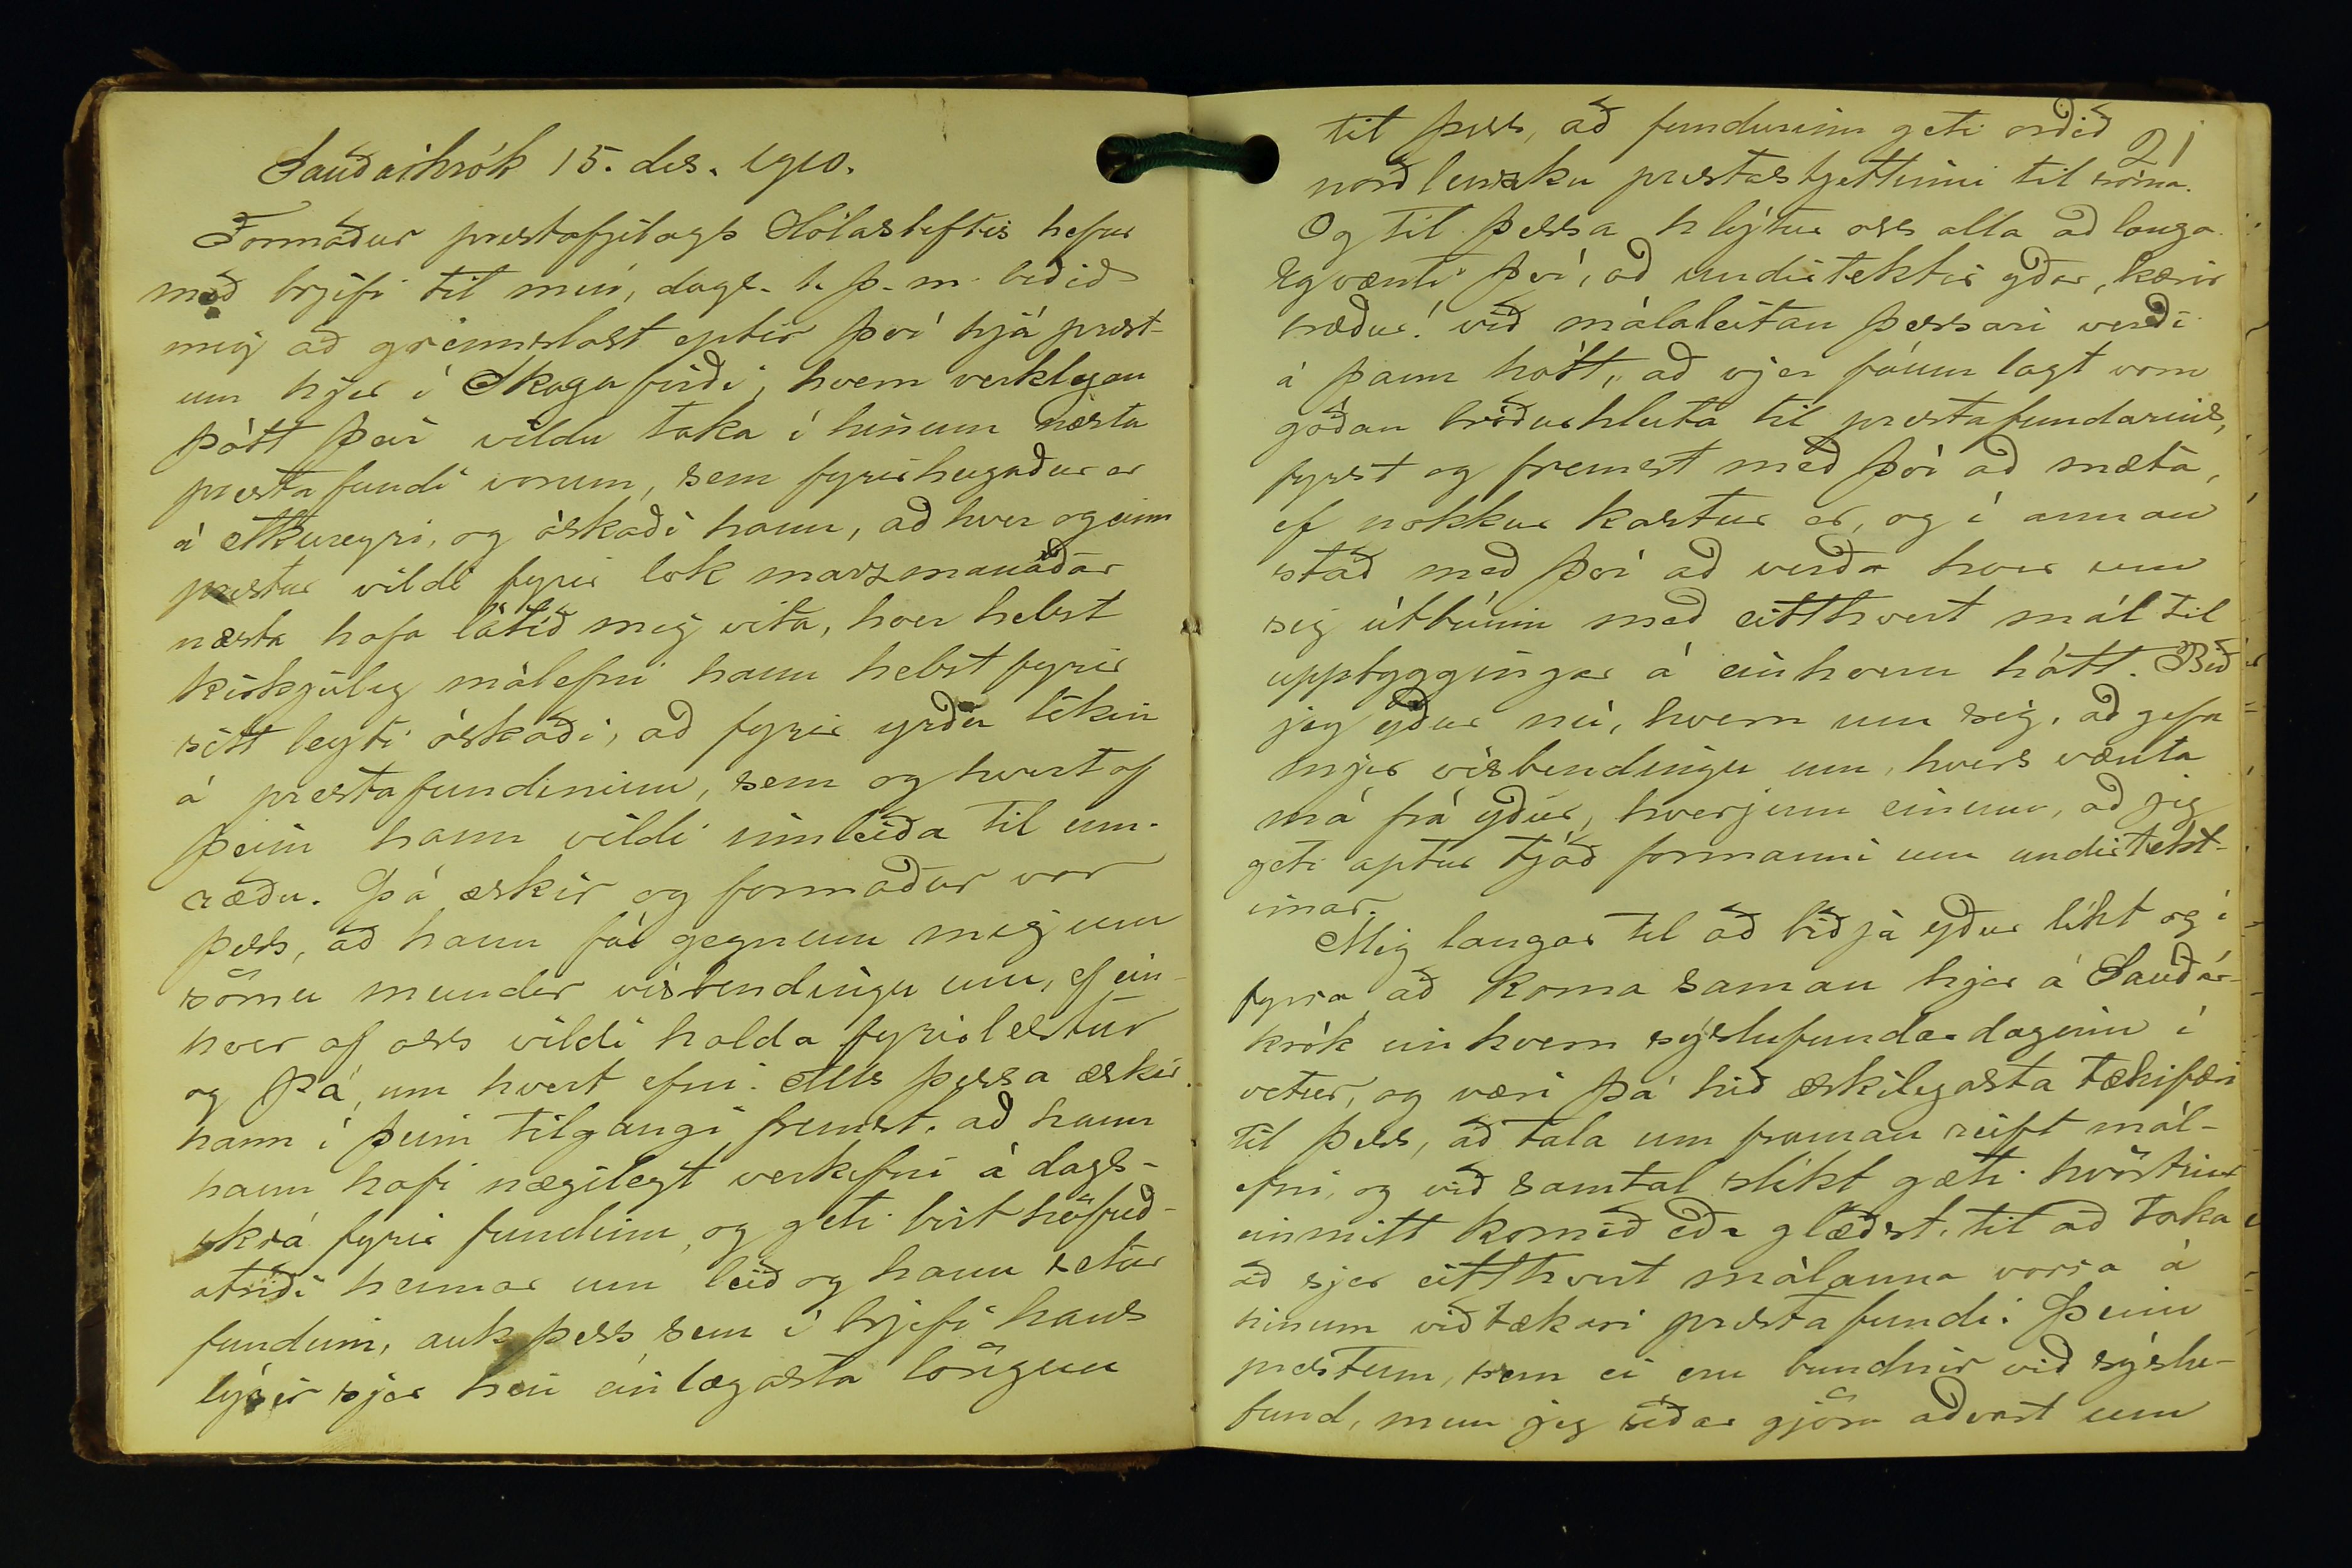 Sauðárkrók 15. des. 1910.
Formaður prestafjelags Hólastiftis hefur
með brjefi til mín, dags. 1. þ. m. beðið
mig að grennslast eptir því hjá prest-
um hjer í Skagafirði, hvern verklegan
þátt þeir vildu taka í hinum næsta
prestafundi vorum, sem fyrirhugaður er
á Akureyri, og óskaði hann, að hver og einn
prestur vildi fyrir lok marzmánaðar
næsta hafa látið mig vita, hver helst
kirkjuleg málefni hann helst fyrir
sitt leyti óskaði, að fyrir yrðu tekin
á prestafundinum, sem og hvert af
þeim hann vildi innleiða til um-
ræðu. Þá æskir og formaður vor
þess, að hann fái gegnum mig um
sömu mundir vísbendingu um, ef ein-
hver af oss vildi halda fyrirlestur
og þá, um hvert efni. Alls þessa æskir
hann í þeim tilgangi fremst, að hann
hann hafi nægilegt verkefni á dags-
skrá fyrir fundinn, og geti birt höfuð-
atriði hennar um leið og hann setur
fundinn, auk þess sem í brjefi hans
lýsir sjer hin einlægasta löngun
21
til þess, að fundurinn geti orðið
norðlenzku prestastjettinni til sóma.
Og til þessa hlýtur oss alla að langa.
Eg vænti því, að undirtektir yðar, kærir
bræður! við málaleitan þessari verði
á þann hátt, að vjer fáum lagt vorn
góðan bróðurhluta til prestafundarins,
fyrst og fremst með því að mæta,
ef nokkur kostur er, og í annan
stað með því að verða hver um
sig útbúinn með eitthvert mál til
uppbyggingar á einhvern hátt. Bið
jeg yður nú, hvern um sig, að gefa
mjer vísbendingu um, hvers vænta
má frá yður, hverjum einum, að jeg
geti aptur tjáð formanni um undirtekt-
irnar.
Mig langar til að biðja yður líkt og í
fyrra, að koma saman hjer á Sauðár-
krók einhvern sýslufundardaginn í
vetur, og væri þá hið æskilegasta tækifæri
til þess, að tala um framan reift mál-
efni, og við samtal slíkt gæti hvötin
einmitt komið eða glæðst, til að taka
að sjer eitthvert málanna vorra á
hinum víðtækari prestafundi. Þeim
prestum, sem ei eru bundnir við sýslu-
fund, mun jeg síðar gjöra aðvart um